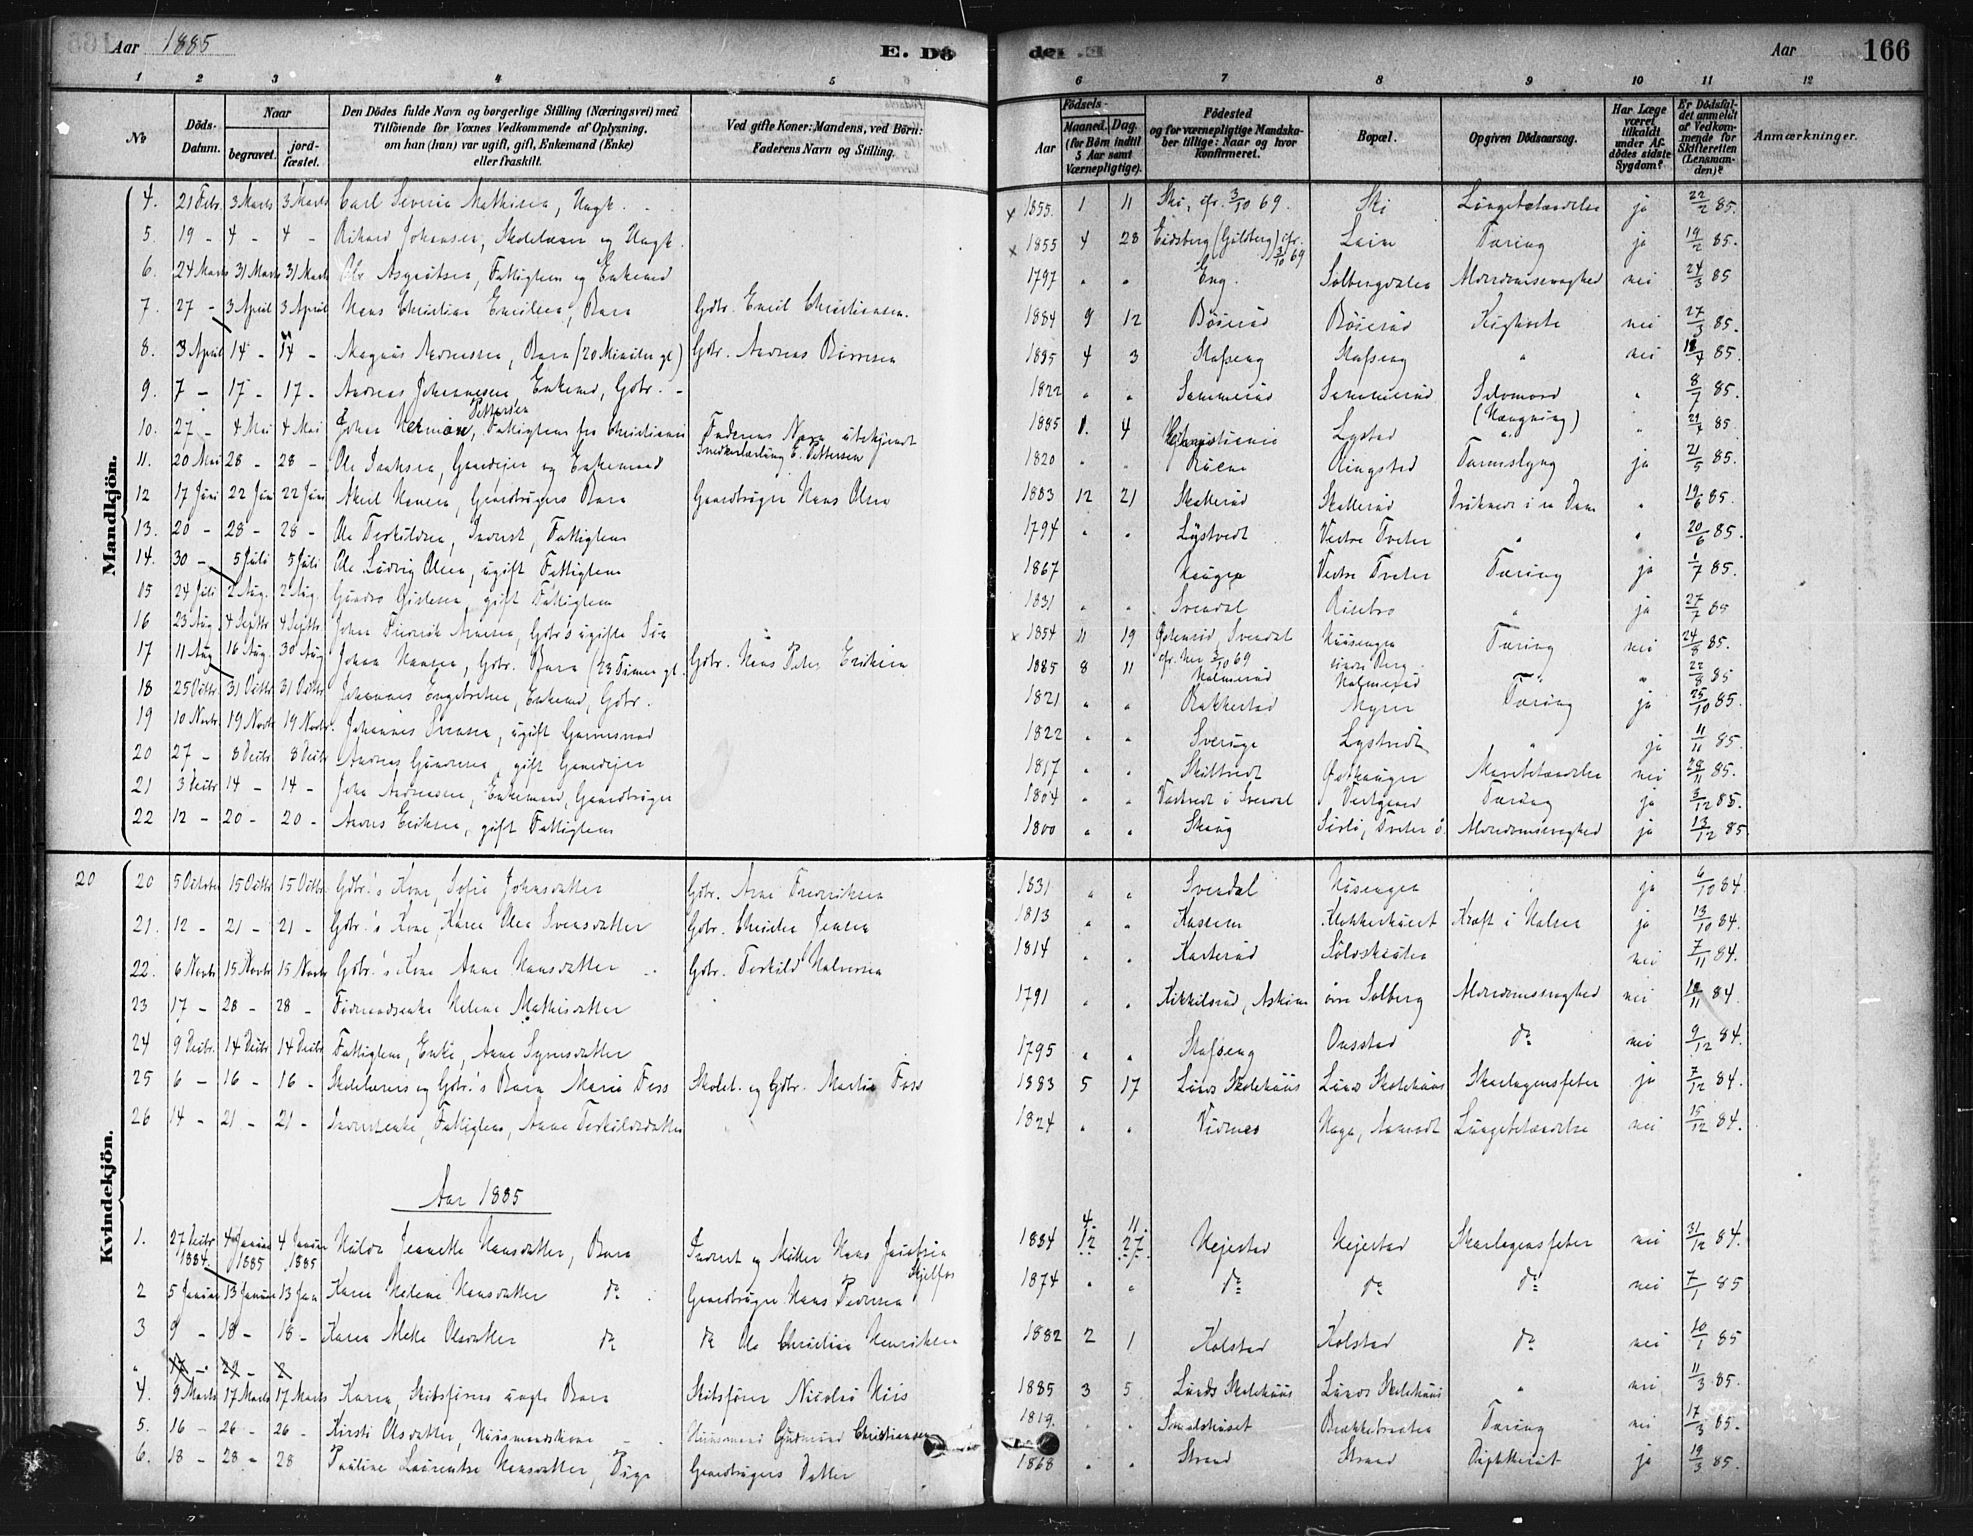 Aar 1885 E. Dö
den E. Aar 166
1 2 3 4 5 6 7 8 9 10 11 12
No
Döds-Datum.
Naar
begravet.
jord-fæstet.
Den Dödes fulde Navn og borgerlige Stilling (Næringsvei) med
Tilföiende for Voxnes Vedkommende af Oplysning,
om han (hun) var ugift, gift, Enkemand (Enke)
eller fraskilt.
Ved gifte Koner: Mandens, ved Börn:
Faderens Navn og Stilling.
Födsels-
Aar
Maaned. Dag.
(for Börn indtil
5 Aar samt
Værnepligtige).
Födested
og for værnepligtige Mandska-
ber tillige: Naar og hvor
konfirmeret.
Bopæl.
Opgiven Dödsaarsag.
Har Læge
været
tilkaldt
under Af-
dödes sidste
Sygdom?
Er Dödsfal-
det anmeldt
af Vedkom-
mende for
Skifteretten
(Lensman-
den)?
Anmærkninger.
Mandkjön.
4. 21 Febr. 3 Marts 3 Marts Carl Severin Mathisen, Ungk. x 1855 1 11 Ski, cfr. 3/10 69. Ski Lungebetændelse ja 22/2 85.
5. 19 - 4 - 4 - Rikard Johansen, Skolelærer og Ungk. x 1855 4 28 Eidsberg cfr. 3/10 69 Tæring ja 19/2 85.
6. 24 Marts 31 Marts 31 Marts Ole Fattiglem og Enkemd 1797 " " Eng. Solbergdalen Alderdomssvaghed nei 24/3 85
7. 27 - 3 April 3 April Hans Christian Emilsen, Barn Gdbr. Emil Christiansen. 1884 9 12 Böierud Böierud Kighoste nei 27/3 85.
8. 3 April 14 - 14 - Magnus Andreassen, Barn (20 Minuter gl) Gdbr. Andreas 1885 4 3 Stafseng Stafseng " nei 85.
9. 7 - 17 - 17 - Andreas Johannesen, Enkemd, Gdbr. - 1822 " " Sammerud Sammerud Selvmord (Hængning) " 85.
10. 27 - 4 Mai 4 Mai Johan Herman Pettersen, Fattiglem fra Christiania Faderens Navn ubekjendt Snedkerlærling E. Pettersen 1885 1. 4 Christiania Lystad " " 85.
11. 20 Mai 28 - 28 - Ole Isaksen, Gaardejer og Enkemand 1820 " " Ringstad Tarmslyng ja 21/5 85.
12 17 Juni 22 Juni 22 Juni Axel Hansen, Gaardbrugers Barn Gaardbruger Hans Olsen 1883 12 21 Skallerud Skallerud Druknede i en Dam " 19/6 85.
13. 20 - 28 - 28 - Ole Terkildsen, Inderst, Fattiglem 1794 " " Lystvedt Vestre Tveter " " 20/6 85.
14. 30 - 5 Juli 5 Juli Ole Ludvig Olsen, ugift Fattiglem 1867 Haugen Vestre Tveter Tæring ja 1/7 85.
15 24 Juli 2 Aug. 2 Aug. Gunder gift Fattiglem 1831 " " Svendal Risebro " ja 27/7 85
16 23 Aug. 4 Septbr 4 Septbr Johan Fredrik Gdbr's ugifte Sön x 1854 11 19 Svendal cfr. 3/10 69 Tæring nei 24/8 85.
17 11 Aug 16 Aug. 30 Aug Johan Hansen, Gdbr. Barn (23 Timer gl. Gdbr. Hans Peter Eriksen 1885 8 11 Halmerud Halmerud " 22/8 85
18 25 Octbr. 31 Octbr. 31 Octbr. Johannes Engebretsen, Enkemd, Gdbr. 1821 " " Rakkestad Myrer Tæring ja 25/10 85.
19 10 Novbr 19 Novbr 19 Novbr. Johannes Svensen, ugift 1822 " " Sverige Lystvedt " ja 11/11 85.
20 27 - 8 Decbr 8 Decbr Andreas Gundersen, gift Gaardejer 1817 " " Skiltvedt Østhaugen Mavebetændelse nei 28/11 85.
21 3 Decbr 14 - 14 - John Andreassen, Enkemand, Gaardbruger 1804 " " i Svendal Vestgaard Tæring ja 3/12 85.
22 12 - 20 - 20 - Anders Eriksen, gift Fattiglem 1800 " " Skaug Tveter Alderdomssvaghed ja 13/12 85
Kvindekjön.
20 20 5 October 15 Octbr 15 Octbr Gdbr.'s Kone, Sofie Johnsdatter Gdbr. Arne Fredriksen 1831 " " Svendal Huseng " ja 6/10 84.
21. 12 - 21 - 21 - Gdbr.'s Kone, Karen Olea Svensdatter Gdbr. Christen Jensen 1813 " " Klokkerhuset Kræft i Halsen ja 13/10 84.
22. 6 Novbr 15 Novbr 15 Novbr Gdbr.'s Kone Anne Hansdatter Gdbr. Terkild Halvorsen 1814 " " Karterud nei 7/11 84.
23 17 - 28 - 28 - Helene Mathisdatter 1791 " " Kikkilsrud, Askim övre Solberg Alderdomssvaghed nei 18/11 84.
24 9 Decbr. 14 Decbr 14 Decbr Fattiglem, Enke, Anne Syversdatter 1795 " " Stafseng Onsstad do nei 9/12 84.
25 6 - 16 - 16 - Skolelærers og Gdbr.'s Barn Marie Foss Skolel. og Gdbr. Martin Foss 1883 5 17 Lunds Skolehuus Lunds Skolehuus Skarlagensfeber ja 7/12 84.
26 14 - 21 - 21 - Inderstenke, Fattiglem, Anne Terkildsdatter 1824 " " Vidnes Haga, Lungebetændelse nei 15/12 84.
Aar 1885
1. 27 Decbr 1884. 4 Januar 1885 4 Januar 1885 Hulda Jeanette Hansdatter, Barn Inderst og Möller Hans Jacobsen Skjelfos 1884 4. 12 11. 27. Hejestad Hejestad Skarlagensfeber nei 31/12 84.
2 5 Januar 13 Januar 13 Jan Karen Helene Hansdatter do Gaardbruger Hans Pedersen 1874 " " do do do nei 7/1 85
3 9 - 18 - 18 - Karen Mathea Olsdatter do do Ole Christian Henriksen 1882 2 1 Kolstad Kolstad do nei 10/1 85
" 17 - 29 - 2
4. 9 Marts 17 Marts 17 Marts Karen, Skibsförers uægte Barn Skibsförer Nicolai Nils 1885 3 5 Lunds Skolehuus Lunds Skolehuus " nei 11/3 85.
5. 16 - 26 - 26 - Kirsti Olsdatter, Huusmandskone Huusmand Gudmund Christiansen 1819. " " Smedshuset Brækkebraaten Tæring nei 17/3 85.
6. 18 - 28 - 28 Pauline Laurentze Hansdatter, Pige Gaardbrugers Datter 1868 " " Strand Strand Diphtherit ja 19/3 85.